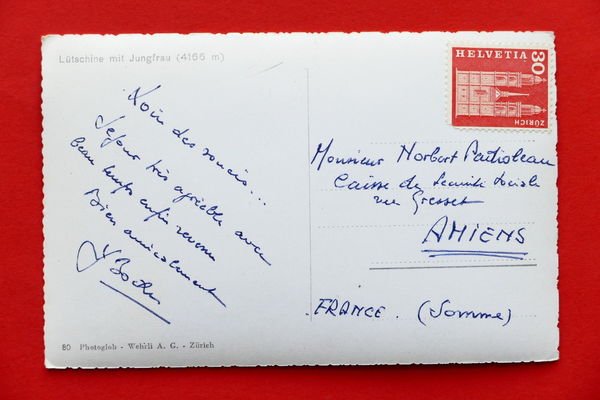 Lütschine mit Jungfrau (4166 m)
HELVETIA
30
ZÜRICH
Loin des soucis...
Séjour très agréable avec
beau temps enfin revenu
Bien amicalement
Monsieur Norbert
Caisse de Sécurité Sociale
rue Gresset
AMIENS
FRANCE. (Somme)
80 Photoglob - Wehrli A. G. - Zürich